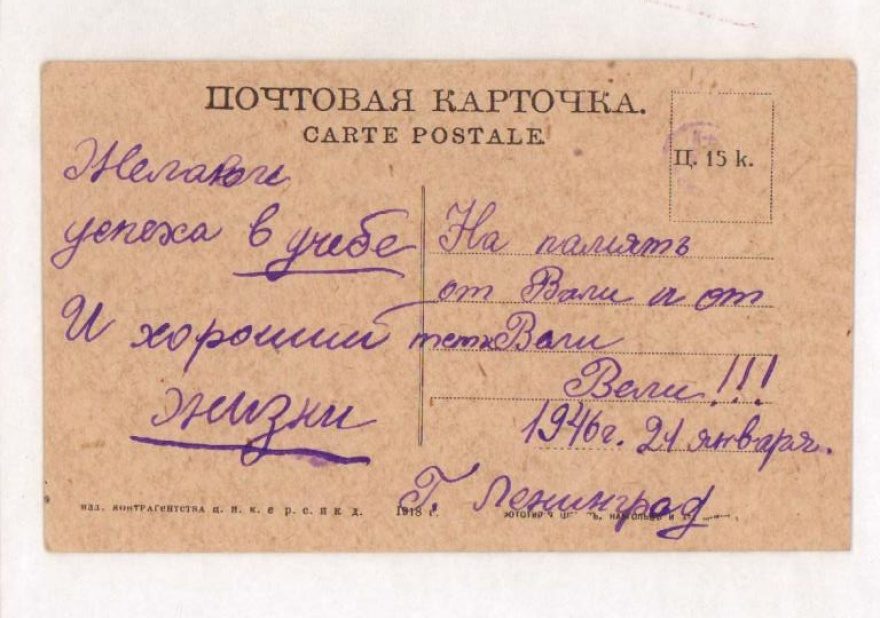 ПОЧТОВАЯ КАРТОЧКА.
CARTE POSTALE.
Ц. 15 к.
Желаюги
успеха в учебе
И хороший
жизни
На память
от Вали и от
тети Вали
Вели!!!
1946г. 21 января.
Г. Ленинград
изд. контрагентства ц. и. к. е р. с. и к. д. 1918 г.